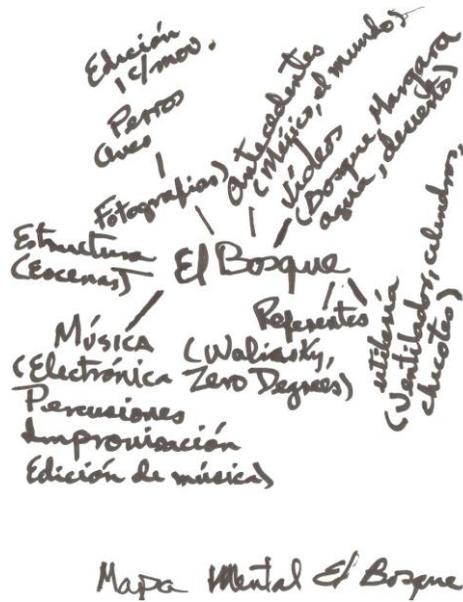 Edición
1 c/mov.
Perros
Aves
Fotografías)
Antecedentes
(Méjico, el mundo)
Vídeos
(Bosque, Margara
agua, desierto)
Estructura
(Escenas)
El Bosque
Música
(Electrónica
Percusiones
Improvisación
Edición de música)
Referentes
(Waliasky,
Zero Degrees)
utilería
(Ventilador, cilindros,
chicotes)
Mapa Mental El Bosque